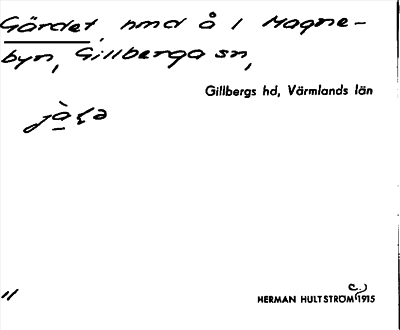 Gärdet, hmd å 1 Magne-
byn, Gillberga sn,
Gillbergs hd, Värmlands län
HERMAN HULTSTRÖM 1915